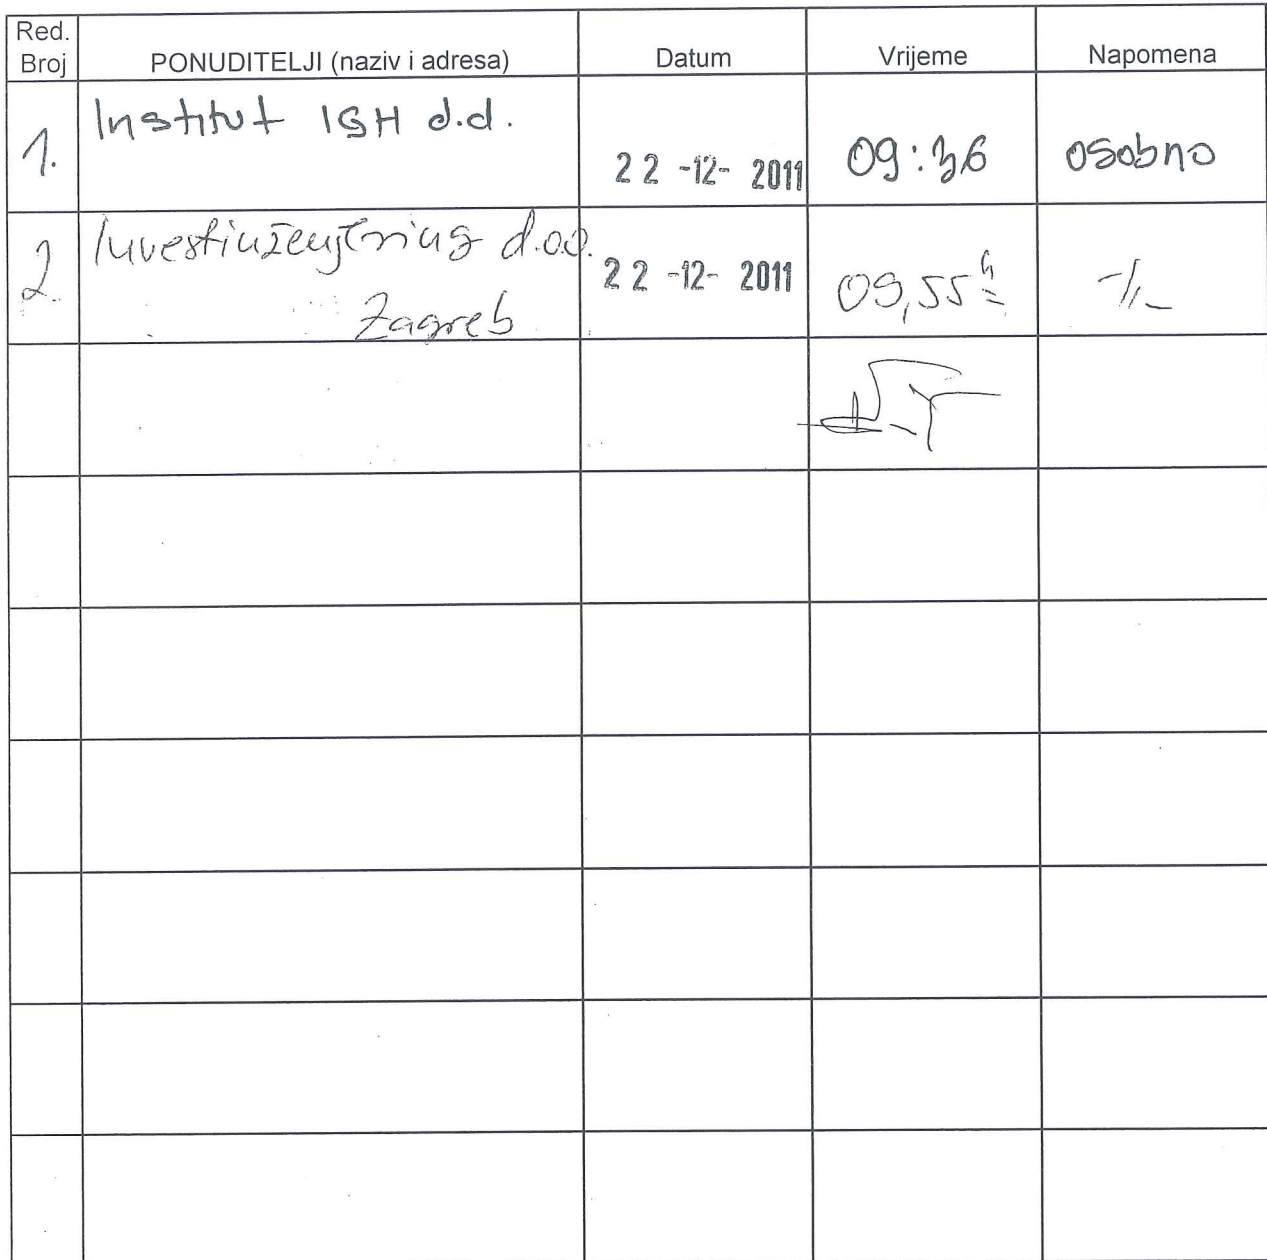 Red. Broj PONUDITELJI (naziv i adresa) Datum Vrijeme Napomena
1. Institut IGH d.d. 22 -12- 2011 09:36 osobno
2. Investinženjering d.o.o. 22 -12- 2011 09,55 h -//-
Zagreb